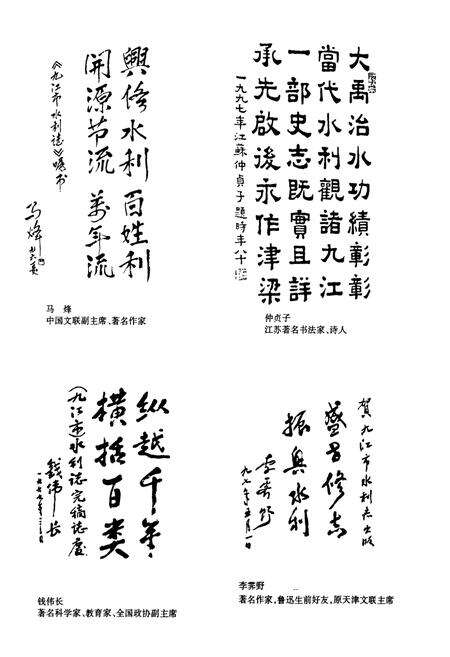 興修水利 百姓利
開源节流 万年流
《九江市水利誌》嘱书
马烽
马 烽
中国文联副主席、著名作家
大禹治水功績彰彰
當代水利觀諸九江
一部史志既實且詳
承先啟後永作津梁
一九九七年江蘇仲貞子題時年八十
仲贞子
江苏著名书法家、诗人
纵越千年
横括百类
《九江市水利誌》完稿誌慶
钱伟长
钱伟长
著名科学家、教育家、全国政协副主席
賀九江市水利志出版
盛世修志
振興水利
李霁野
九七年五月一日
李霁野
著名作家,鲁迅生前好友,原天津文联主席